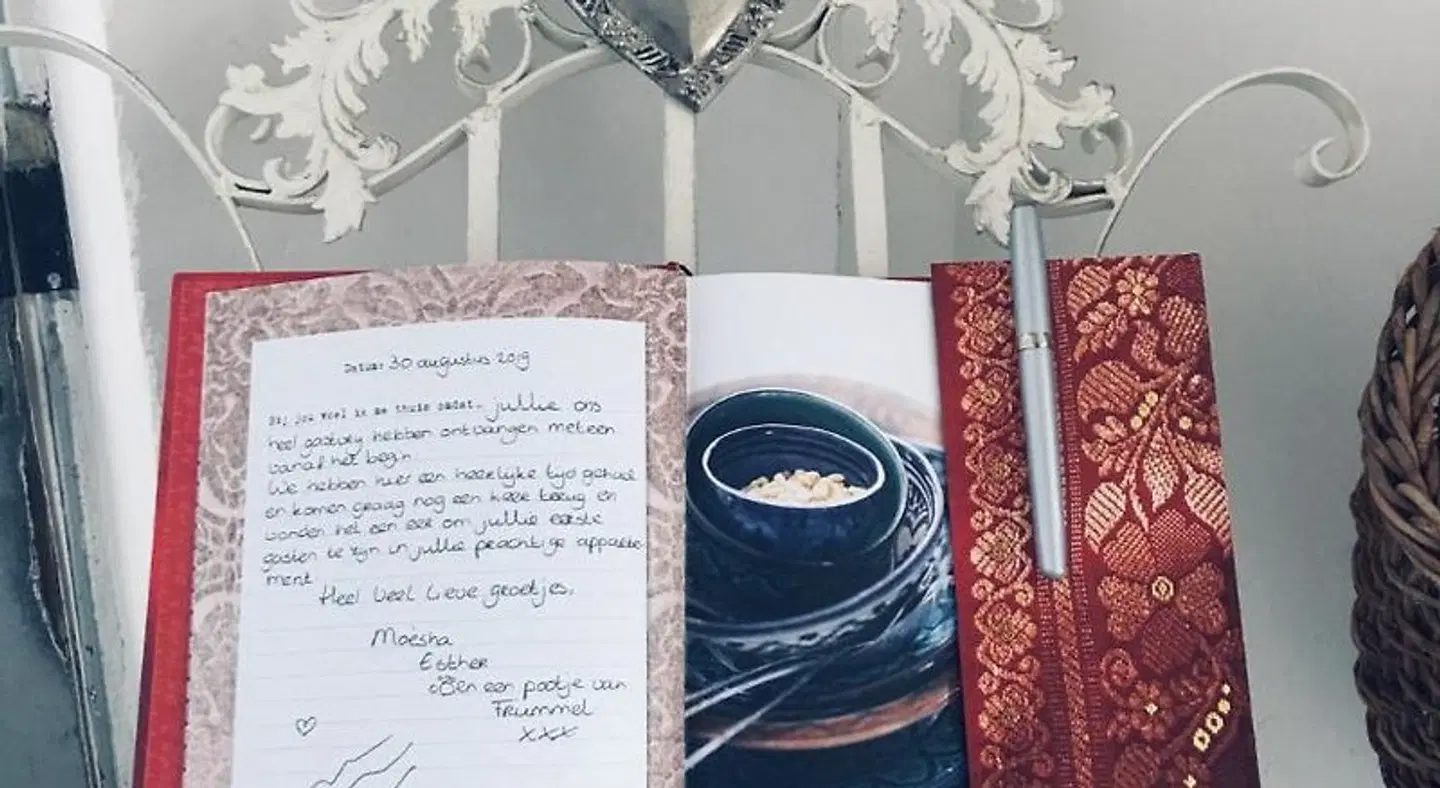 Datum: 30 augustus 2019
Wij jou voel ik me thuis omdat.. jullie ons
heel gastvrij hebben ontvangen meteen
vanaf het begin.
We hebben hier een heerlijke tijd gehad
en komen graag nog een keer terug en
vonden het een eer om jullie eerste
gasten te zijn in jullie prachtige apparte
ment
Heel veel lieve groetjes,
Moësha
Esther
en een pootje van
Frummel
xxx